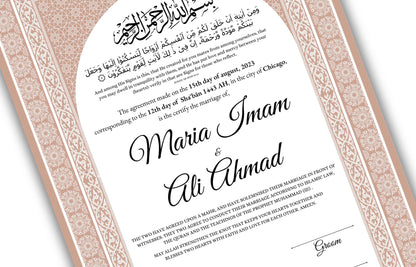 بسم الله الرحمن الرحيم
وَمِنْ آيَاتِهِ أَنْ خَلَقَ لَكُم مِّنْ أَنفُسِكُمْ أَزْوَاجًا لِّتَسْكُنُوا إِلَيْهَا وَجَعَلَ
بَيْنَكُم مَّوَدَّةً وَرَحْمَةً، إِنَّ فِي ذَٰلِكَ لَآيَاتٍ لِّقَوْمٍ يَتَفَكَّرُونَ
And among His Signs is this, that He created for you mates from among yourselves, that
you may dwell in tranquility with them, and He has put love and mercy between your
(hearts); verily in that are Signs for those who reflect.
The agreement made on the 15th day of august, 2023
corresponding to the 12th day of Sha'bān 1443 AH, in the city of Chicago,
is the certify the marriage of,
Maria Imam
&
Ali Ahmad
THE TWO HAVE AGREED UPON A MAHR, AND HAVE SOLEMNISED THEIR MARRIAGE IN FRONT OF
WITNESSES. THEY TWO AGREE TO CONDUCT THEIR MARRIAGE ACCORDING TO ISLAMIC LAW,
THE QURAN AND THE TEACHINGS OF THE PROPHET MUHAMMAD
MAY ALLAH STRENGTHEN THE KNOT THAT KEEPS YOUR HEARTS TOGETHER AND
BLESSES TWO HEARTS WITH FAITH AND LOVE FOR EACH OTHER. AMEEN.
Groom